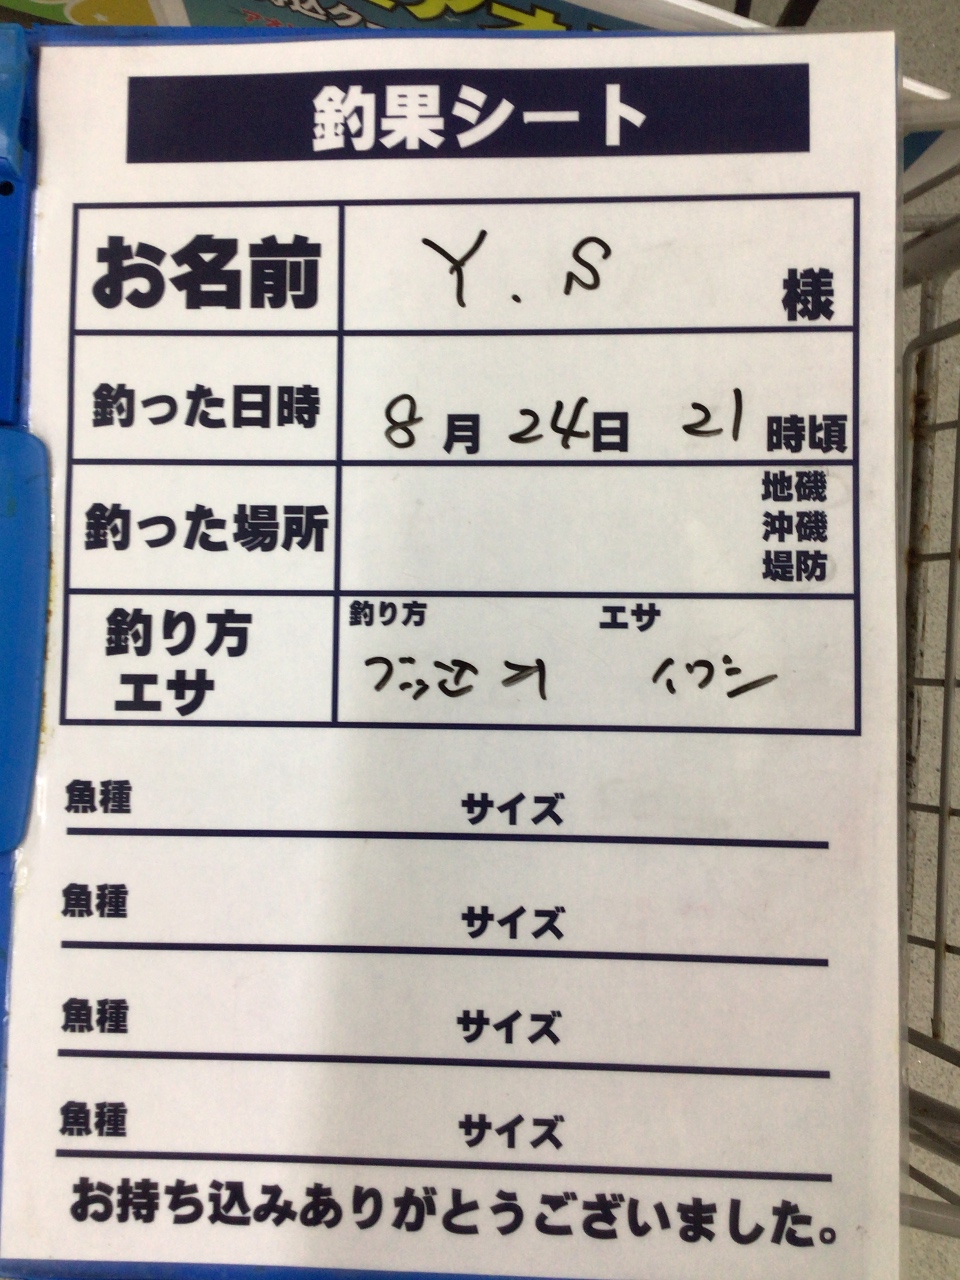 釣果シート
お名前 Y.S 様
釣った日時 8月24日 21時頃
釣った場所
地磯
沖磯
堤防
釣り方
エサ
釣り方 エサ
ブッ込み イワシ
魚種 サイズ
魚種 サイズ
魚種 サイズ
魚種 サイズ
お持ち込みありがとうございました。